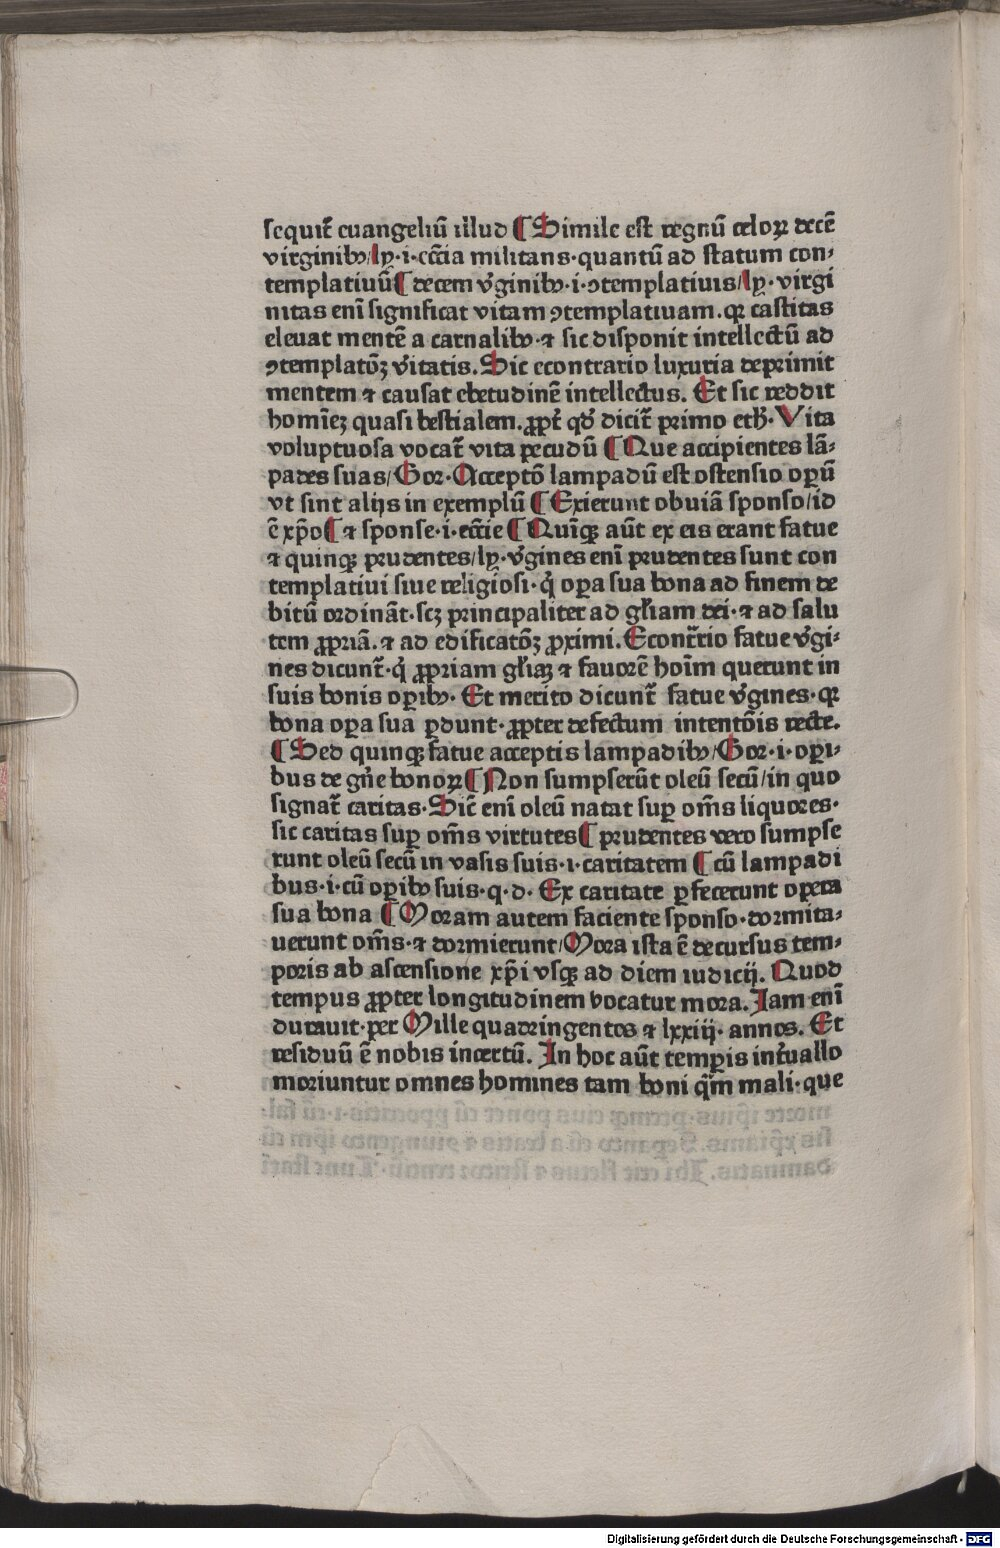 sequit̃ euangeliũ illud ¶ Simile est regnũ celoꝝ decẽ
virginibꝰ/ly̾·i·eccĩa militans·quantũ ad statum con⸗
templatiuũ¶ decem v̾ginibꝰ·i·ꝯtemplatiuis/ly̾·virgi
nitas enĩ significat vitam ꝯtemplatiuam·qꝛ castitas
eleuat mentẽ a carnalibꝰ·⁊ sic disponit intellectũ ad
ꝯtemplatõꝫ v̾itatis. Sic econtrario luxuria deprimit
mentem ⁊ causat ebetudinẽ intellectus. Et sic reddit
homĩeꝫ quasi bestialem.ꝓpt̾ qđ dicit̃ primo eth̾·Vita
voluptuosa vocat̃ vita pecudũ ¶ Que accipientes lã⸗
pades suas/Gor·Acceptõ lampadũ est ostensio oꝑũ
vt sint alijs in exemplũ ¶ Exierunt obuiã sponso/id
ẽ xp̃o¶ ⁊ sponse·i·ecc̃ie ¶ Quĩqꝫ aũt ex eis erant fatue
⁊ quinqꝫ prudentes/ly̾·v̾gines enĩ prudentes sunt con
templatiui siue religiosi·q̾ oꝑa sua bona ad finem de
bitũ ordinãt·scꝫ principaliter ad gl̃iam dei·⁊ ad salu
tem ꝓpriã.⁊ ad edificatõꝫ ꝓximi. Econt̃rio fatue v̾gi⸗
nes dicunt̃·q̾ ꝓpriam gl̃iaꝫ ⁊ fauorẽ hoĩm querunt in
suis bonis oꝑibꝰ· Et merito dicunt̃ fatue v̾gines·qꝛ
bona oꝑa sua ꝑdunt·ꝓpter defectum intentõis recte.
¶ Sed quinqꝫ fatue acceptis lampadibꝰ/Gor·i·oꝑi⸗
bus de gñe bonoꝝ¶ Non sumpserũt oleũ secũ/in quo
signat̃ caritas·Sic̃ enĩ oleũ natat suꝑ om̃s liquores·
sic caritas suꝑ om̃s virtutes¶ prudentes vero sumpse
runt oleũ secũ in vasis suis·i·caritatem ¶ cũ lampadi
bus·i·cũ oꝑibꝰ suis·q·d· Ex caritate ꝑfecerunt opera
sua bona ¶ Moram autem faciente sponso·dormita⸗
uerunt om̃s·⁊ dormierunt/Mora ista ẽ decursus tem⸗
poris ab ascensione xp̃i vsqꝫ ad diem iudicij. Quod
tempus ꝓpter longitudinem vocatur mora. Jam enĩ
durauit·per Mille quadringentos ⁊ lxxiij· annos. Et
residuũ ẽ nobis incertũ. Jn hoc aũt temꝑis int̃uallo
moriuntur omnes homines tam boni q̃m mali·que
Digitalisierung gefördert durch die Deutsche Forschungsgemeinschaft - DFG